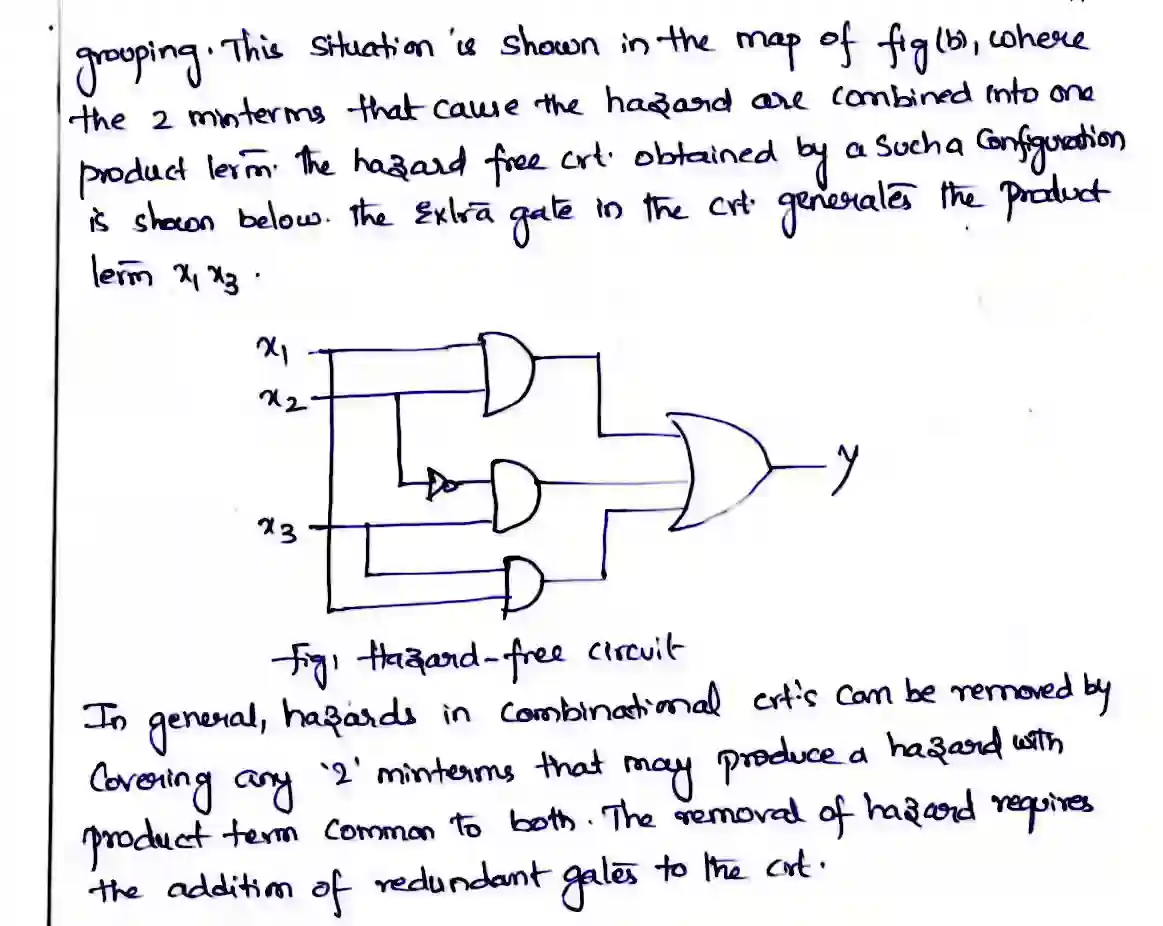 grouping. This situation is shown in the map of fig(b), where
the 2 minterms that cause the hazard are combined into one
product term. The hazard free crt. obtained by a such a configuration
is shown below. The Extra gate in the crt. generates the product
term x1 x3.
x1
x2
x3
y
fig: Hazard-free circuit
In general, hazards in combinational crt's can be removed by
Covering any '2' minterms that may produce a hazard with
product term common to both. The removal of hazard requires
the addition of redundant gates to the crt.